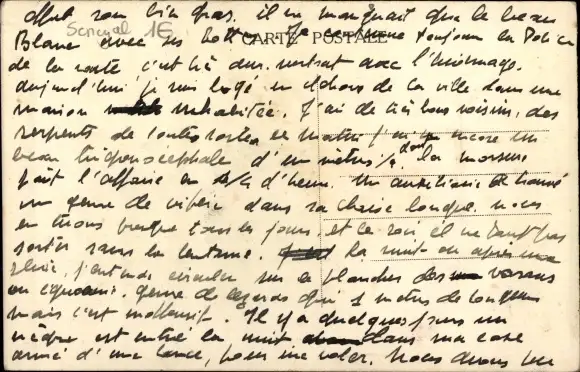 effet son bien gras. il ne manquait que le beau
Senegal 1E
Blanc avec ses bottes. Je continue toujours la Police
CARTE POSTALE
de la route c'est très dur, surtout avec l'hivernage.
aujourd'hui je suis logé en dehors de la ville dans une
maison inhabitée. J'ai de très bons voisins, des
serpents de toutes sortes ce matin j'ai vu encore un
beau trigonocéphale d'un mètre 1/2 dont la morsure
fait l'affaire en d'heure. Un auxiliaire a trouvé
un genre de vipère dans sa chaise longue. nous
en tuons presque tous les jours, et le soir il ne faut pas
sortir sans la lanterne. la nuit ou après une
pluie, j'entends circuler sur les planches des varans
ou iguanes. genre de lézards d'un 2 mètres de longueur
mais c'est inoffensif. Il y a quelques jours un
nègre est entré la nuit dans ma case
armé d'une lance, pour me voler. Nous avons un